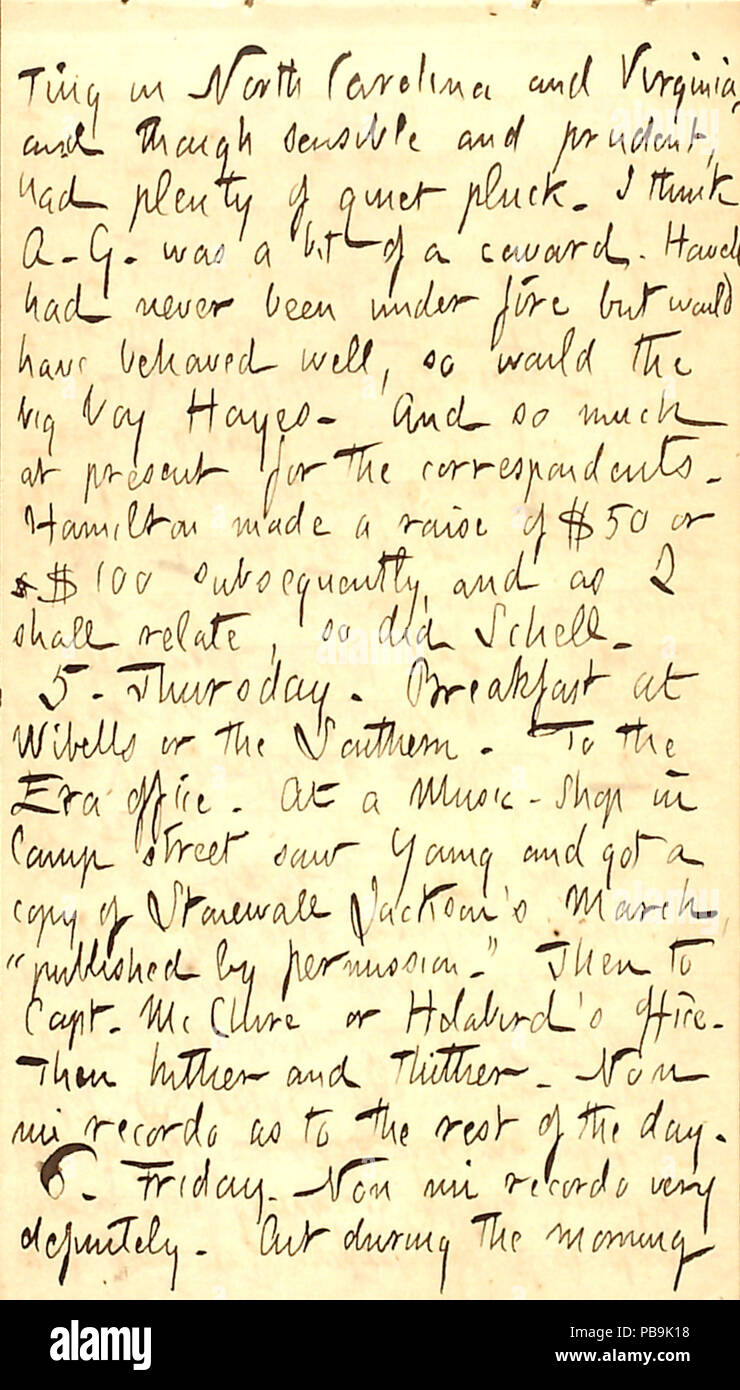 ting in North Carolina and Virginia,
and though sensible and prudent,
had plenty of quiet pluck. I think
A. G. was a bit of a coward.
had never been under fire but would
have behaved well, so would the
big boy Hayes. And so much
at present for the correspondents.
Hamilton made a raise of $50 or
$100 subsequently, and as I
shall relate, so did Schell.
5. Thursday. Breakfast at
Wibells or the Southern. To the
Era office. At a Music-Shop in
Camp street saw Young and got a
copy of Stonewall Jackson's March,
"published by permission." Then to
Capt. McClure or Holabird's office.
Then hither and thither. Non
mi recordo as to the rest of the day.
6. Friday. Non mi recordo very
definitely. Out during the morning
alamy
Image ID: PB9K18
www.alamy.com